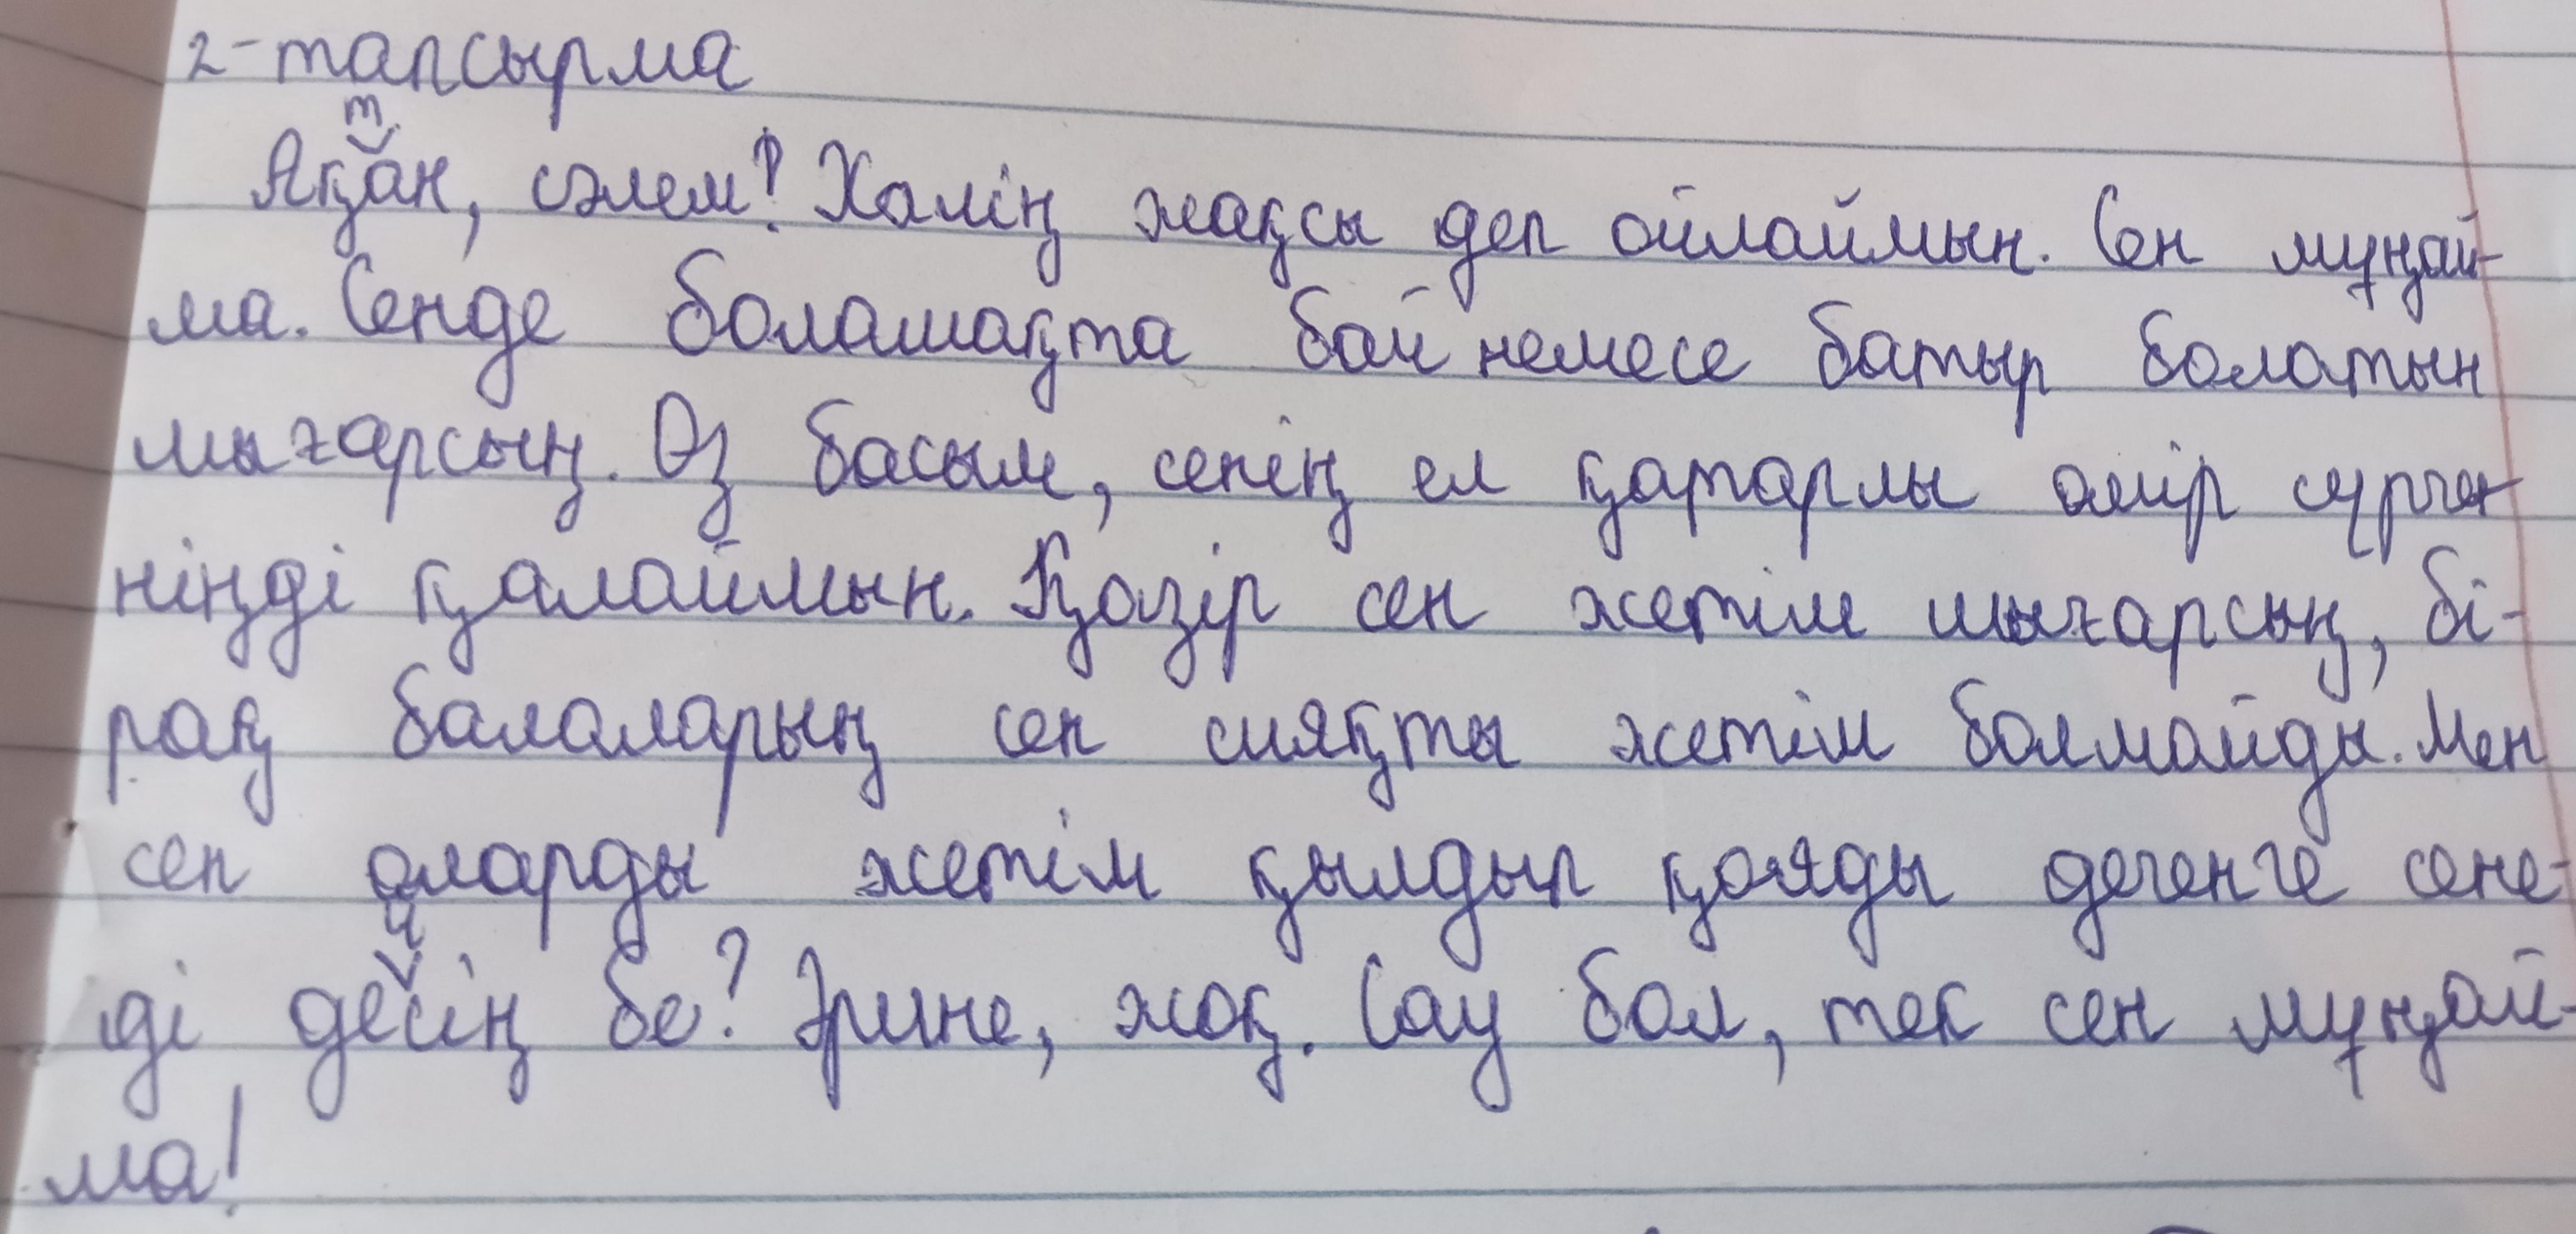 2-тапсырма
Яқтан, сәлем! Халің жақсы деп ойлаймын. Сен мұңай-
ма. Сенде болашақта бай немесе батыр болатын
шығарсың. Өз басым, сенің ел қатарлы өмір сүрге-
ніңді қалаймын. Қазір сен жетім шығарсың, бі-
рақ балаларың сен сияқты жетім болмайды. Мен
сен оларды жетім қылдып қояды дегенге сене-
ді дейсің бе? Әрине, жоқ. Сау бол, тек сен мұңай-
ма!